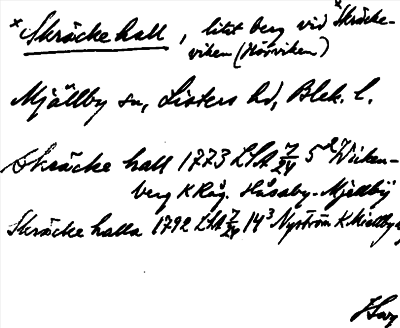 *Skräcke hall, litet berg vid *Skräcke-
viken (Norviken)
Mjällby sn, Listers hd, Blek. l.
Skräcke hall 1773 LSA 7/24 5² Wicken-
berg K Råg. Hüsaby-Mjellby
Skräcke halla 1792 LSA 7/24 14³ Nyström K. Miellby